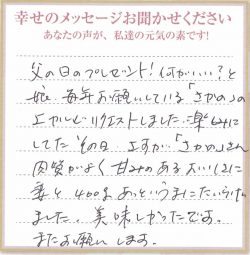 幸せのメッセージお聞かせください
あなたの声が、私達の元気の素です!
父の日のプレゼント!何がいい?と
娘。毎年お願いしている「さかの」の
エゾシカにリクエストしました。楽しみに
してたその日、さすが「さかの」さん
肉質がよく甘みのあるおいしさに
妻と400gあっというまにたいらげ
ました。美味しかったです。
またお願いします。